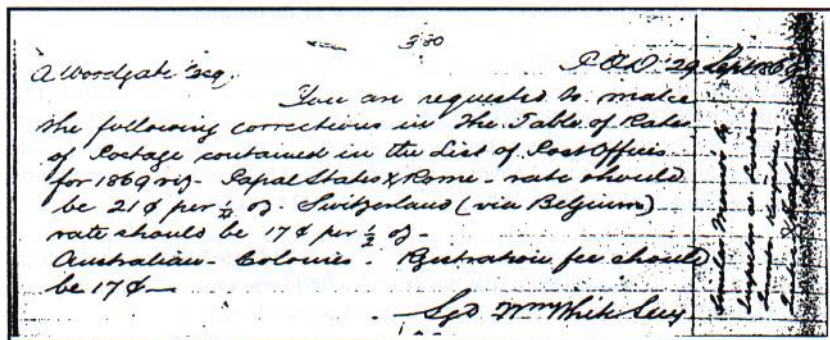 380
A Woodgate Esq.
P.O.D. 29 Sept 1869
You are requested to make
the following corrections in the Table of Rates
of Postage contained in the List of Post Offices
for 1869 viz - Papal States & Rome - rate should
be 21¢ per ½ oz. Switzerland (via Belgium)
rate should be 17¢ per ½ oz -
Australian Colonies - Registration fee should
be 17¢ —
Sgd Wm White Secy
Similar Memo to
Inspectors at